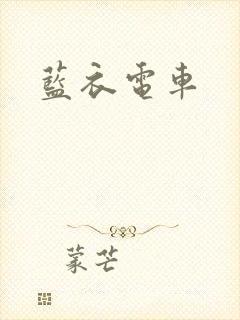 藍衣電車
蒙芒